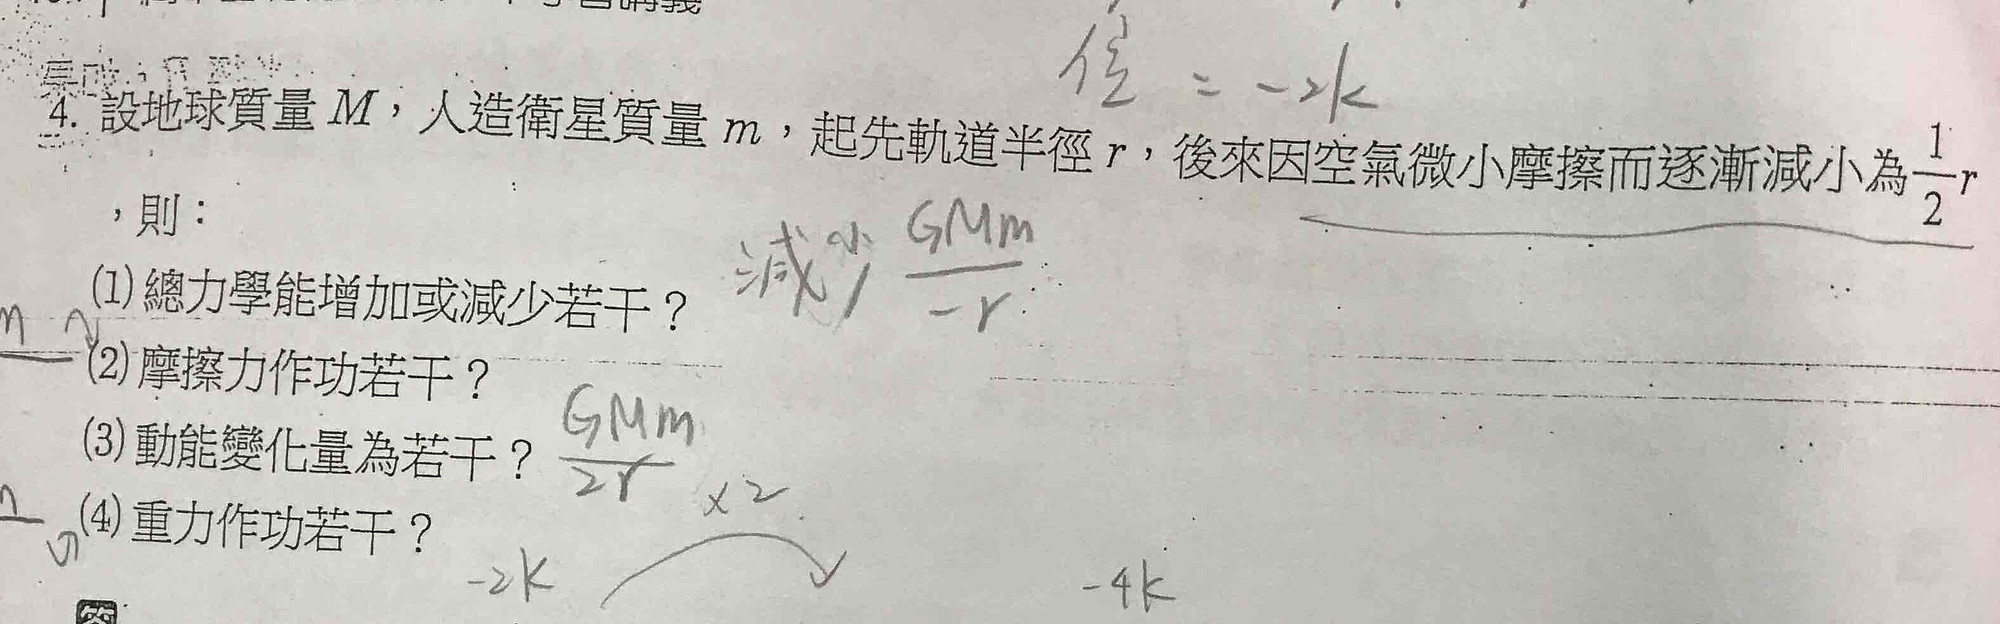 位 = -2k
4. 設地球質量 M，人造衛星質量 m，起先軌道半徑 r，後來因空氣微小摩擦而逐漸減小為 1/2 r
，則：
減少 GMm/-r
(1) 總力學能增加或減少若干？
(2) 摩擦力作功若干？
(3) 動能變化量為若干？ GMm/2r
×2
(4) 重力作功若干？
-2k
-4k
答